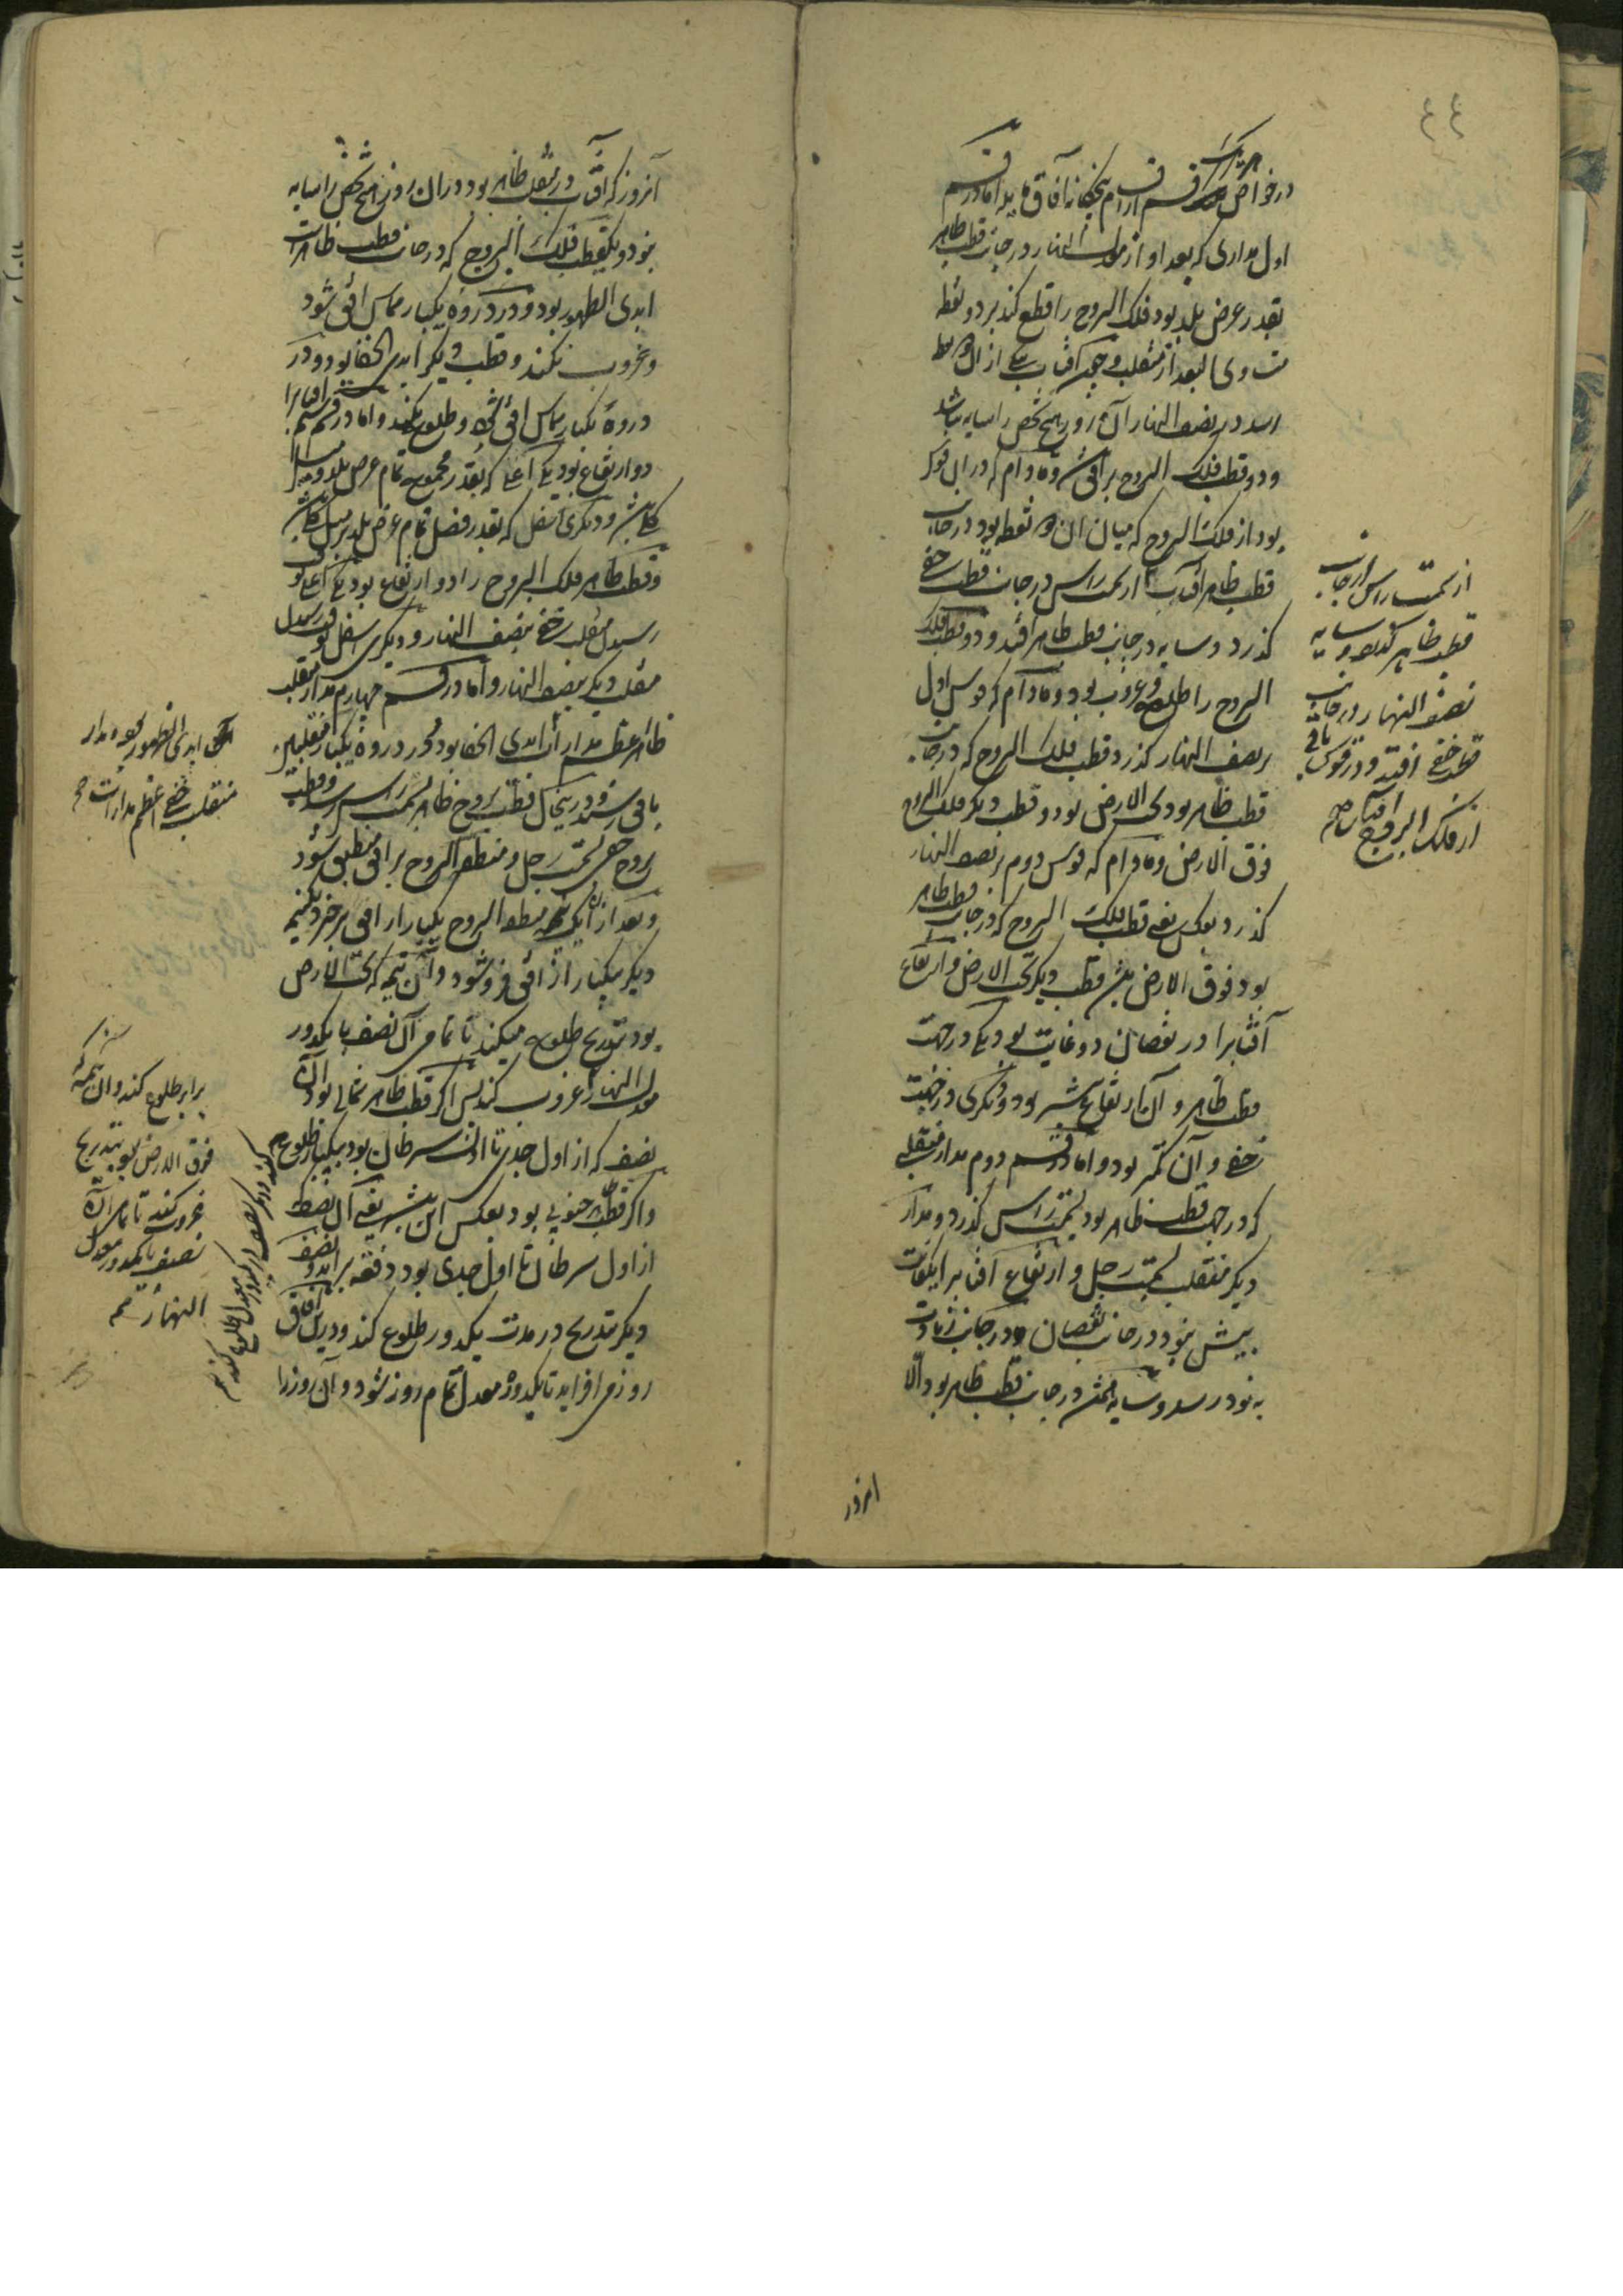 ٤٤
در خواص هر یک قسم از اقسام پنجگانه آفاق مایله اما در قسم
اول مداری که بعد او از معدل النهار در جانب قطب ظاهر
بقدر عرض بلد بود فلک البروج را قطع کند بر دو نقطه
متساوی البعد از منقلب و چون آفتاب بیکی از ان دو نقطه
رسد در نصف النهار آن روز هیچ شخص را سایه نباشد
و دو قطب فلک البروج بر افق و مادام که در ان قوس
بود از فلک البروج که میان ان دو نقطه بود در جانب
قطب ظاهر آفتاب از سمت راس در جانب قطب خفی
گذرد و سایه در جانب قطب ظاهر افتد و دو قطب فلک
البروج را طلوع و غروب بود و مادام که قوس اول
بر نصف النهار گذرد قطب فلک البروج که در جانب
قطب ظاهر بود تحت الارض بود و قطب دیگر فلک البروج
فوق الارض و مادام که قوس دوم بر نصف النهار
گذرد بعکس یعنی قطب فلک البروج که در جانب قطب ظاهر
بود فوق الارض و قطب دیگر تحت الارض و ارتفاع
آفتابرا در نقصان دو غایت بود یکی در جهت
قطب ظاهر و آن ارتفاع بیشتر بود و دیگری در جهت
خفی و آن کمتر بود و اما در قسم دوم مدار منقلبی
که در جهت قطب ظاهر بود بسمت راس گذرد و مدار
دیگر منقلب بسمت رجل و ارتفاع آفتابرا یکغایت
بیش نبود در جانب نقصان و در جانب زیادت
به نود رسد و سایه در جانب قطب ظاهر بود الا
امروز
از سمت راس در جانب
قطب ظاهر گذرد و سایه
نصف النهار در جانب
قطب خفی افتد و در قوس باقی
از فلک البروج
آنروز که آفتاب در منقلب ظاهر بود در ان روز هیچ شخص را سایه
نبود و یک قطب فلک البروج که در جانب قطب ظاهر است
ابدی الظهور بود و در دوره یکبار مماس افق شود
و غروب نکند و قطب دیگر ابدی الخفا بود و در
دوره یکبار مماس افق شود و طلوع نکند و اما در قسم سیم آفتابرا
دو ارتفاع بود یکی اعلی که بقدر مجموع تمام عرض بلد و میل
کلی باشد و دیگری اسفل که بقدر فضل تمام عرض بلد بر میل کلی باشد
و قطب ظاهر فلک البروج را دو ارتفاع بود یکی اعلی
رسیدن منقلب خفی بنصف النهار و دیگری اسفل
منقلب دیگر بنصف النهار و اما در قسم چهارم مدار منقلب
ظاهر اعظم مدارات ابدی الخفا بود و در دوره یکبار
بافق رسند و درینحال قطب بروج ظاهر بسمت راس رسد و قطب
بروج خفی بسمت رجل و منطقة البروج بر افق منطبق شود
و بعد از ان یک نیمه منطقة البروج یکبار از افق برخیزد و نیم
دیگر بیکبار از افق فرو شود و آن نیمه که تحت الارض
بود بتدریج طلوع میکند تا تمامی آن نصف با یکدور
معدل النهار غروب کند پس اگر قطب ظاهر شمالی بود آن
نصف که از اول جدی تا آخر سرطان بود بیکبار طلوع
و اگر قطب جنوبی بود بعکس این باشد یعنی آن نصف که
از اول سرطان تا اول جدی بود دفعة بر آید و نصف
دیگر بتدریج در مدت یکدور طلوع کند و درین آفاق
روز می افزاید تا یکدور معدل تمام روز شود و آن روز را
ابدی الظهور بود و مدار
منقلب خفی اعظم مدارات
برابر طلوع کند و ان نیمه که
فوق الارض بود بتدریج
غروب کند تا تمامی آن
نصف با یکدور معدل
النهار تمه